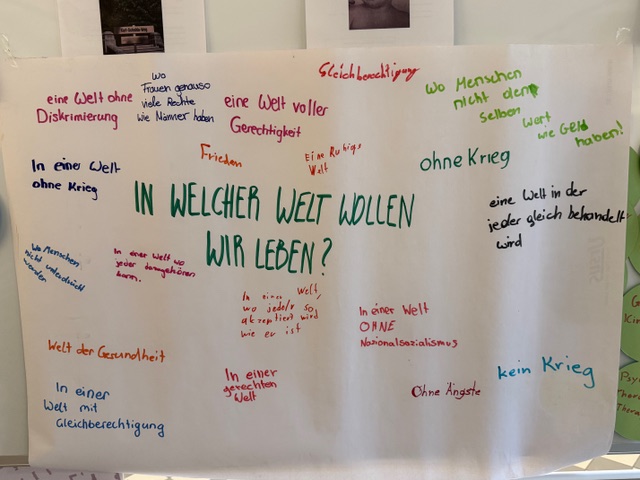 Gleichberechtigung
eine Welt ohne
Diskrimierung
wo
Frauen genauso
viele Rechte
wie Männer haben
eine Welt voller
Gerechtigkeit
wo Menschen
nicht den
selben
Wert
wie Geld
haben!
Frieden
Eine Ruhige
Welt
ohne Krieg
In einer Welt
ohne Krieg
IN WELCHER WELT WOLLEN
WIR LEBEN?
eine Welt in der
jeder gleich behandelt
wird
Wo Menschen
nicht unterdrückt
werden
In einer Welt wo
jeder
kann.
In einer Welt,
wo jede/r so
akzeptiert wird
wie er ist
In einer Welt
OHNE
Nazionalsozialismus
Welt der Gesundheit
In einer
gerechten
Welt
Ohne Ängste
kein Krieg
In einer
Welt mit
Gleichberechtigung